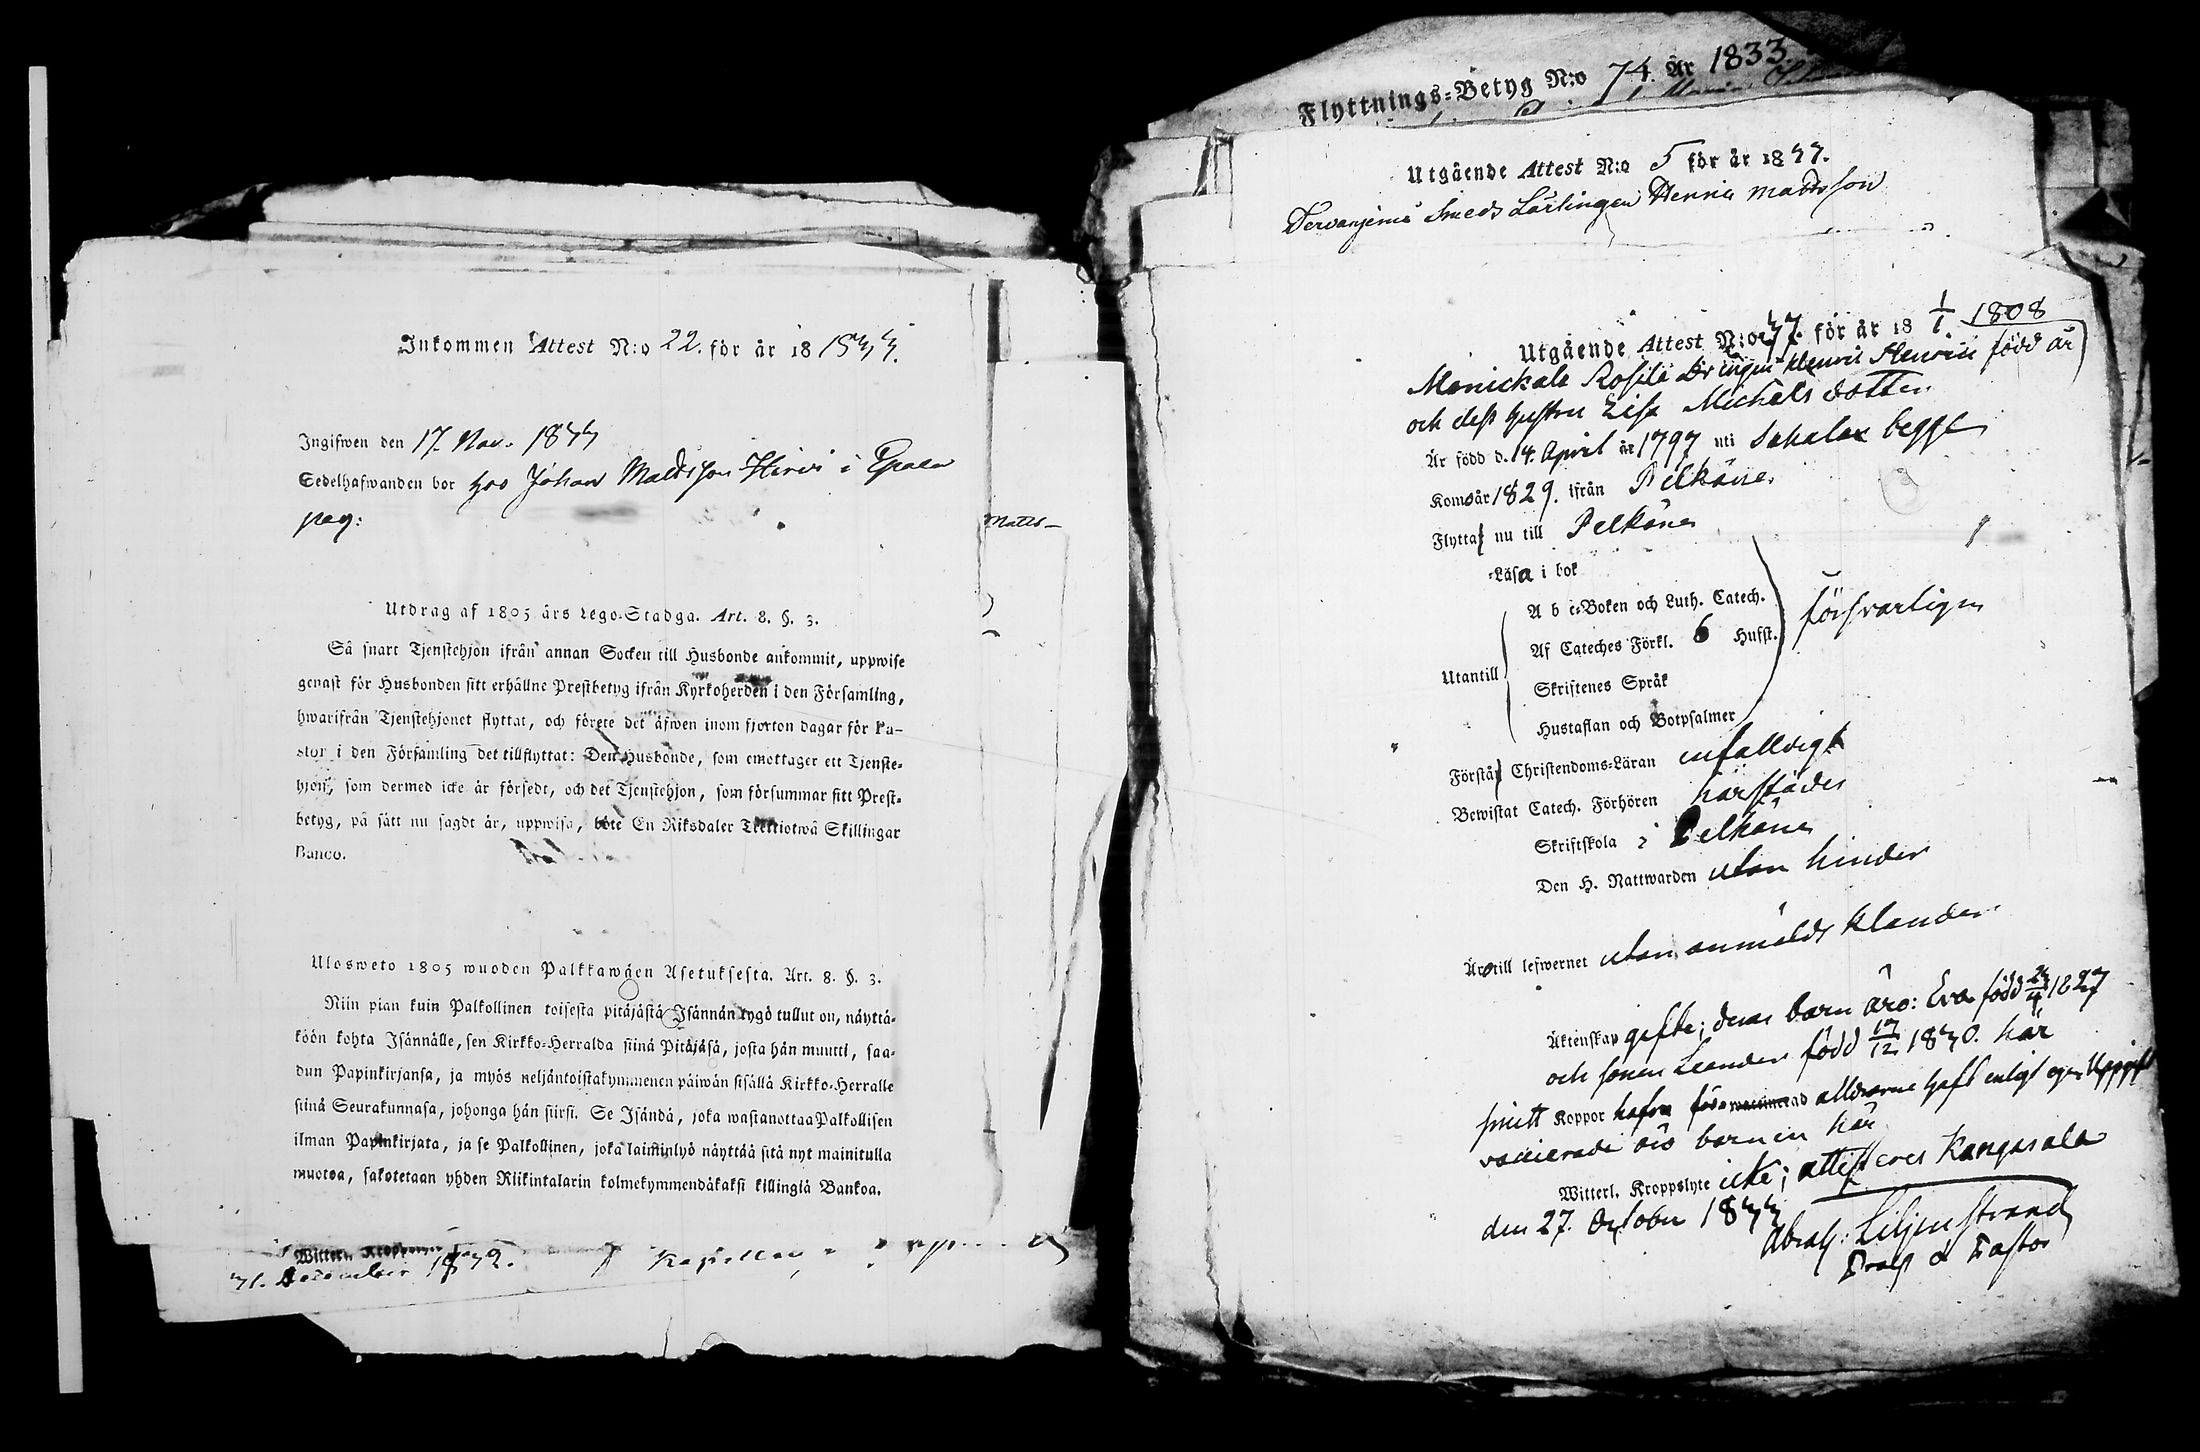 Inkommen Attest N:o 22. för år 18 1833.
Ingifwen den 17. Nov. 1833
Sedelhafwanden bor hos Johan Mattsson Hirvi i Epaa
pag:
Utdrag af 1805 års Lego-Stadga. Art. 8. §. 3.
Så snart Tjenstehjon ifrån annan Socken till Husbonde ankommit, uppwise
genast för Husbonden sitt erhållne Prestbetyg ifrån Kyrkoherden i den Församling,
hwarifrån Tjenstehjonet flyttat, och förete det äfwen inom fjorton dagar för Pa-
stor i den Församling det tillflyttat: Den Husbonde, som emottager ett Tjenste-
hjon, som dermed icke är försedt, och det Tjenstehjon, som försummar sitt Prest-
betyg, på sätt nu sagdt är, uppwisa, böte En Riksdaler Trettiotwå Skillingar
Banco.
Ulosweto 1805 wuoden Palkkawäen Asetuksesta. Art. 8. §. 3.
Niin pian kuin Palkollinen toisesta pitäjästä Isännän tygö tullut on, näyttä-
köön kohta Isännälle, sen Kirkko-Herralda siinä Pitäjäsä, josta hän muutti, saa-
dun Papinkirjansa, ja myös neljäntoistakymmenen päiwän sisällä Kirkko-Herralle
siinä Seurakunnasa, johonga hän siirsi. Se Isändä, joka wastanottaa Palkollisen
ilman Papinkirjata, ja se Palkollinen, joka laiminlyö näyttää sitä nyt mainitulla
muotoa, sakotetaan yhden Riikintalarin kolmekymmendäkaksi killingiä Bankoa.
Witterl. Kroppslyte
31. December 1832. Kapellan
Matts-
Flyttnings-Betyg N:o 74. År 1833.
Utgående Attest N:o 5 för år 1833.
Smeds Lärlingen Henric Mattsson
Utgående Attest N:o 37. för år 18 1/1 1808
Manickala Rosili Drängen Henric Henric född år
och dess hustru Lisa Michelsdotter
Är född d. 14 April år 1797 uti Sahalax begge
Kom år 1829. ifrån Pelkäne
Flyttaʃ nu till Pelkäne
Läsa i bok
A b c-Boken och Luth. Catech.
Utantill Af Cateches Förkl. 6 Husst. försvarligen
Skriftenes Språk
Hustaflan och Botpsalmer
Förstå Christendoms-Läran enfalldigt
Bewistat Catech. Förhören härstädes
Skriftskola i Pelkäne
Den H. Nattwarden utan hinder
Äro till lefwernet utan anmäldt klander
Äktenskap gifte; deras barn äro: Eva född 24/4 1827
och sonen Leander född 17/12 1830. här
smitt Koppor hafva föräldrarne haft enligt egen uppgift
vaccinerade äro barnen här
Witterl. Kroppslyte icke; attesteres Kangasala
den 27. October 1833
Abrah: Liljenstrand
Probst & Pastor